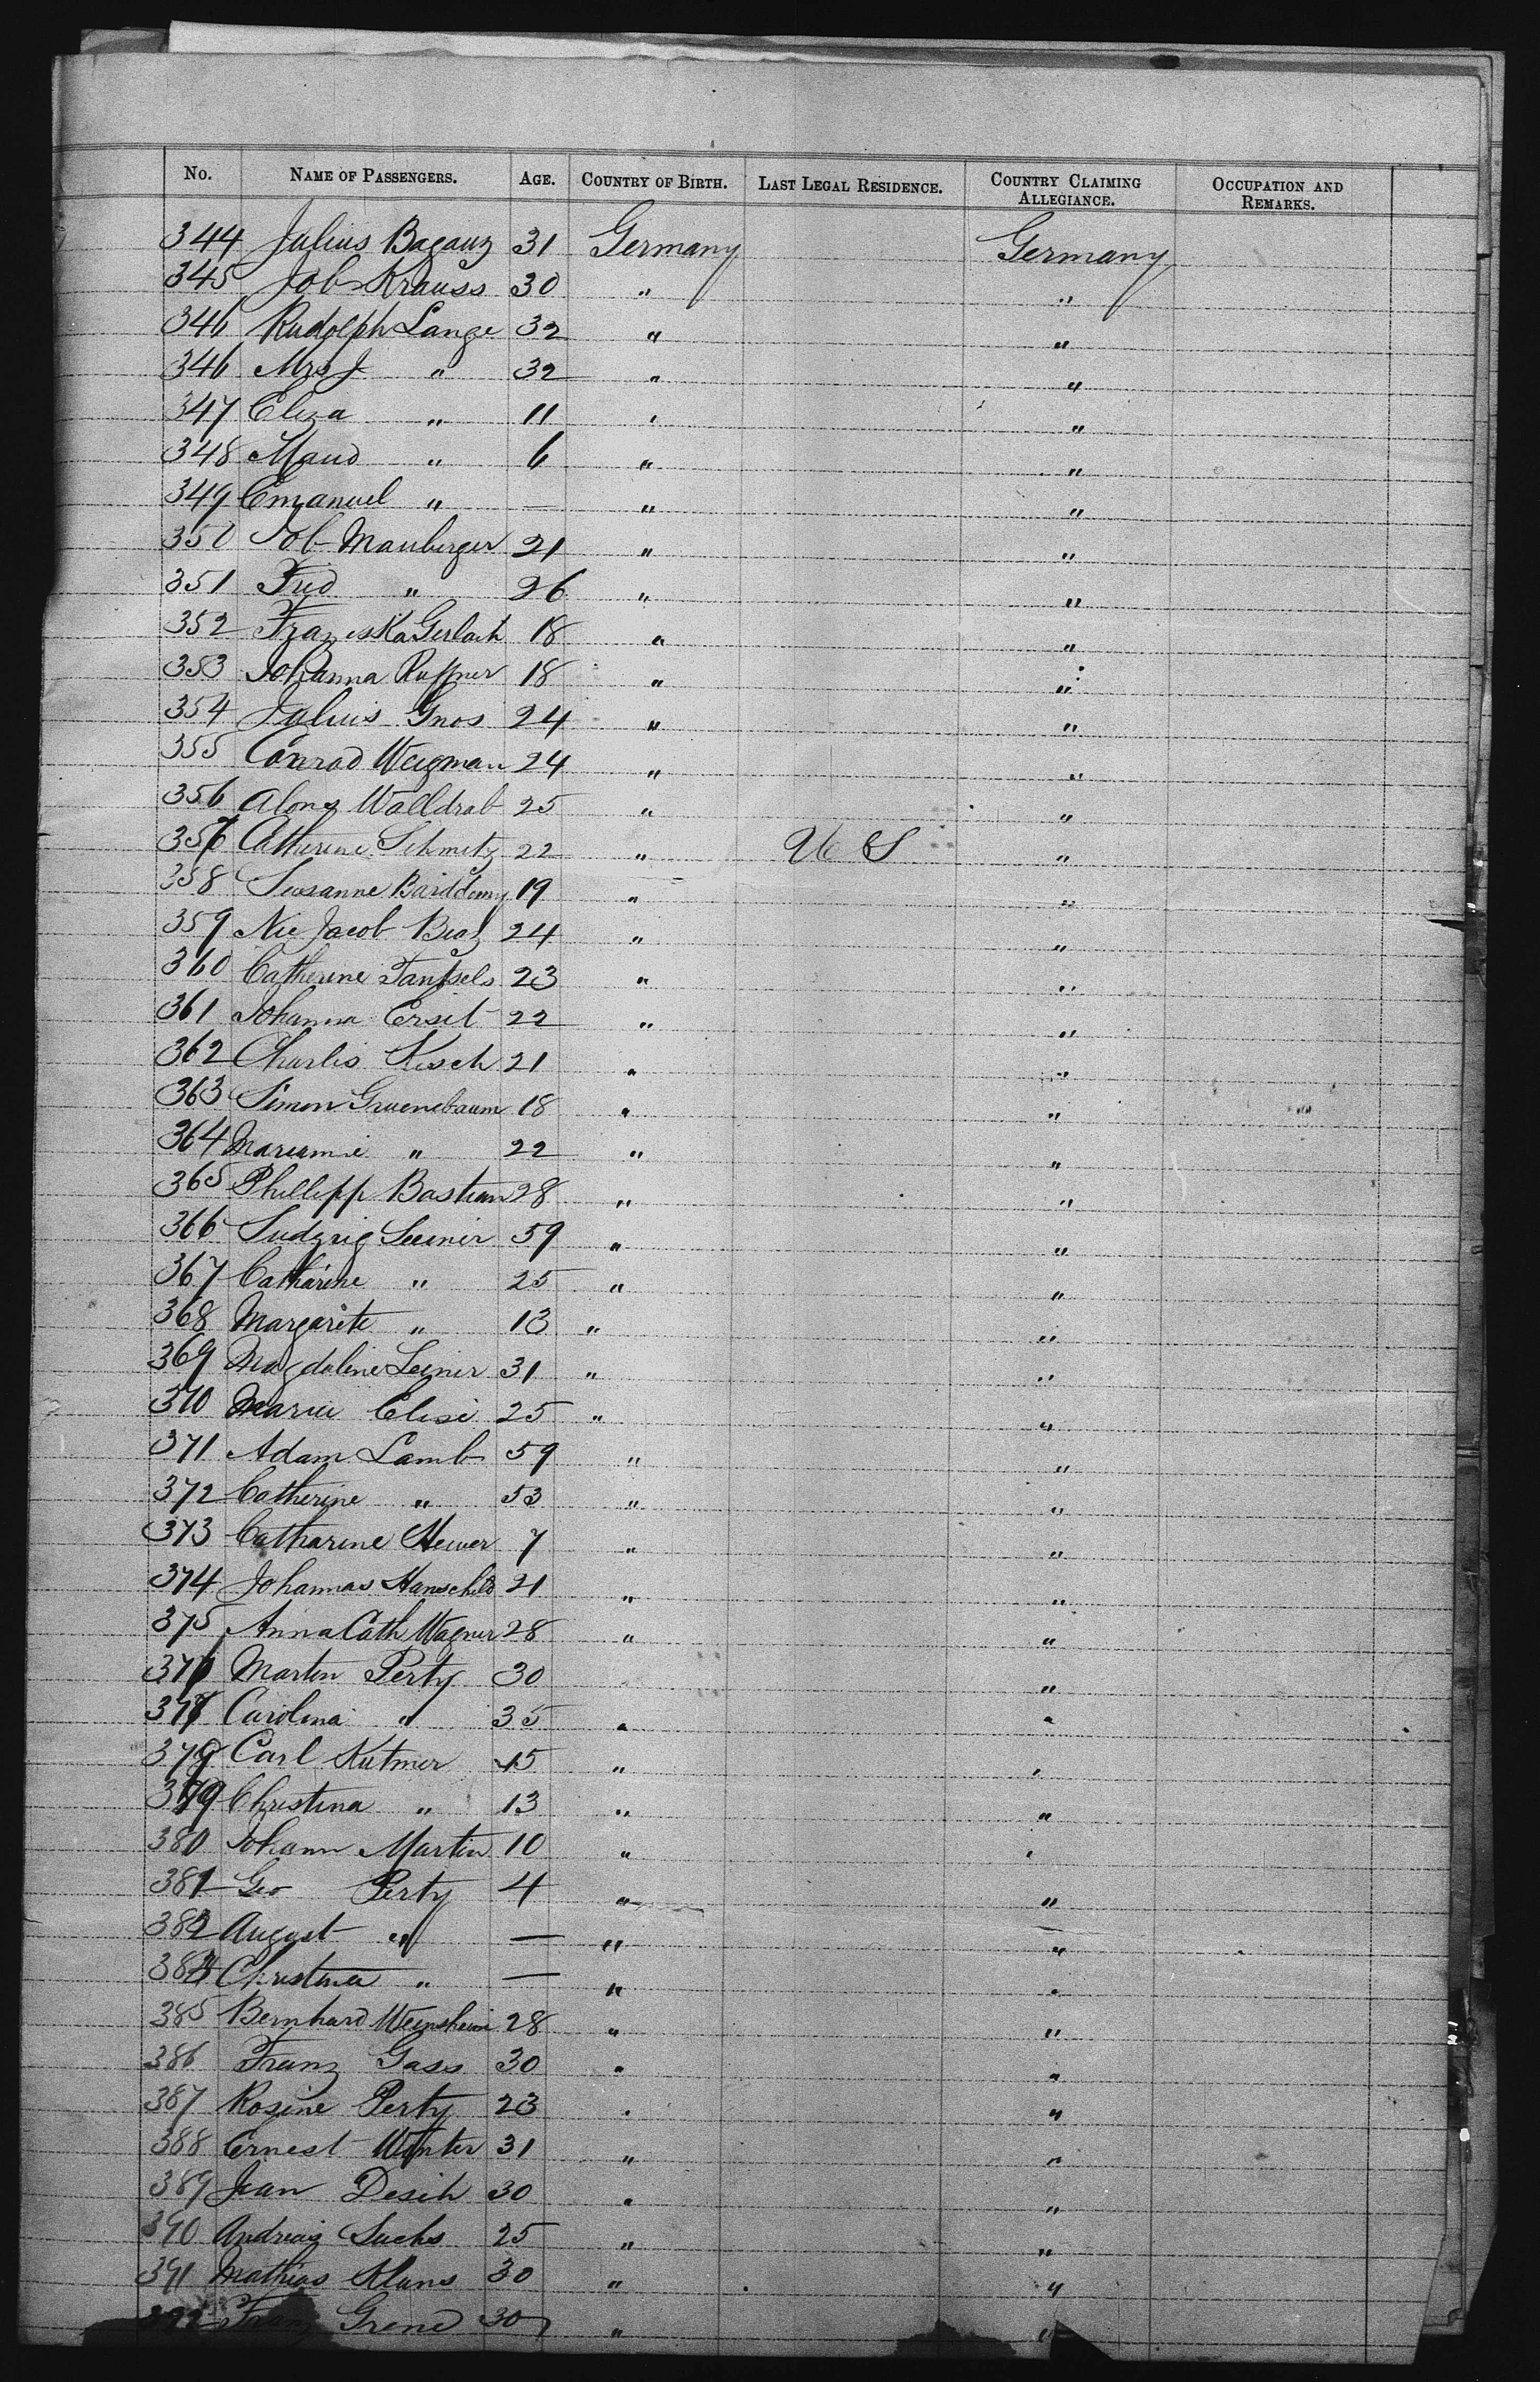 No. NAME OF PASSENGERS. AGE. COUNTRY OF BIRTH. LAST LEGAL RESIDENCE. COUNTRY CLAIMING ALLEGIANCE. OCCUPATION AND REMARKS.
344 Julius Baganz 31 Germany Germany
345 Job Krauss 30 " "
346 Rudolph Lange 32 " "
346 Mrs J " 32 " "
347 Eliza " 11 " "
348 Maud " 6 " "
349 Emanuel " — " "
350 Job Mauberger 21 " "
351 Fred " 26 " "
352 Franziska Gerlach 18 " "
353 Johanna Ruffner 18 " "
354 Julius Gnos 24 " "
355 Conrad Weigman 24 " "
356 Alons Walldrab 25 " "
357 Catherine Schmitz 22 " U S "
358 Susanne 19 " "
359 Nic Jacob 24 " "
360 Catherine 23 " "
361 Johanna Ersit 22 " "
362 Charles Kisch 21 " "
363 Simon Gruenebaum 18 " "
364 " 22 " "
365 Phillipp Bastian 28 " "
366 Leiner 59 " "
367 Catharine " 25 " "
368 Margarete " 13 " "
369 Magdalene Leiner 31 " "
370 Maria Elise 25 " "
371 Adam Lamb 59 " "
372 Catherine " 53 " "
373 Catharine Hewer 7 " "
374 Johannas Hanschild 21 " "
375 Anna Cath Wagner 28 " "
376 Martin Perty 30 "
377 Carolina " 35 " "
378 Carl Kutmer 15 " "
379 Christina " 13 " "
380 Johann Martin 10 " "
381 Geo Perty 4 " "
382 August " — " "
384 Christina " — " "
385 Bernhard Weinsheim 28 " "
386 Franz Gass 30 " "
387 Rosine Perty 23 " "
388 Ernest Winter 31 " "
389 Jean Desih 30 " "
390 Andreas Suchs 25 " "
391 Mathias Klans 30 " "
392 Franz Grene 30 " "